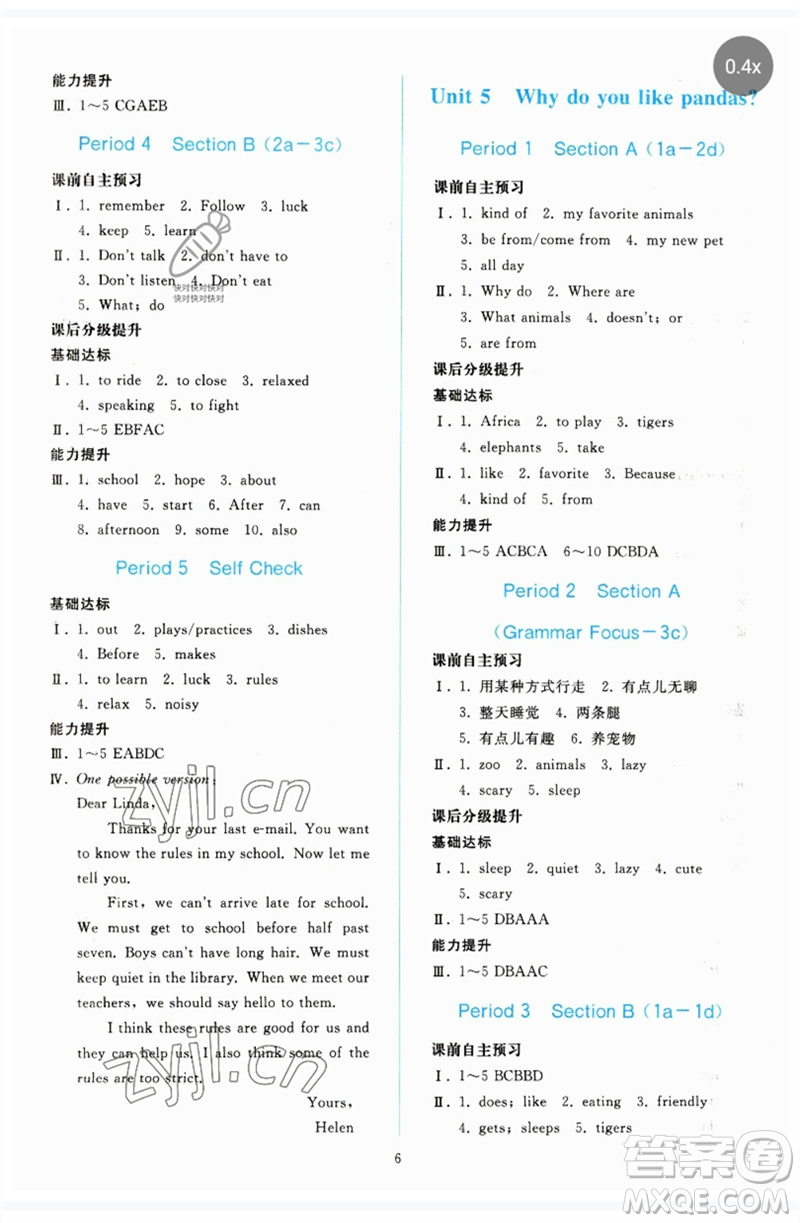 0.4x
能力提升
Ⅲ. 1～5 CGAEB
Period 4 Section B(2a－3c)
课前自主预习
Ⅰ. 1. remember 2. Follow 3. luck
4. keep 5. learn
Ⅱ. 1. Don't talk 2. don't have to
3. Don't listen 4. Don't eat
5. What; do
快对快对快对快对
快对快对快对快对
课后分级提升
基础达标
Ⅰ. 1. to ride 2. to close 3. relaxed
4. speaking 5. to fight
Ⅱ. 1～5 EBFAC
能力提升
Ⅲ. 1. school 2. hope 3. about
4. have 5. start 6. After 7. can
8. afternoon 9. some 10. also
Period 5 Self Check
基础达标
Ⅰ. 1. out 2. plays/practices 3. dishes
4. Before 5. makes
Ⅱ. 1. to learn 2. luck 3. rules
4. relax 5. noisy
能力提升
Ⅲ. 1～5 EABDC
Ⅳ. One possible version:
Dear Linda,
Thanks for your last e-mail. You want
to know the rules in my school. Now let me
tell you.
First, we can't arrive late for school.
We must get to school before half past
seven. Boys can't have long hair. We must
keep quiet in the library. When we meet our
teachers, we should say hello to them.
I think these rules are good for us and
they can help us. I also think some of the
rules are too strict.
Yours,
Helen
zyjl.cn
zyjl.cn
Unit 5 Why do you like pandas?
Period 1 Section A(1a－2d)
课前自主预习
Ⅰ. 1. kind of 2. my favorite animals
3. be from/come from 4. my new pet
5. all day
Ⅱ. 1. Why do 2. Where are
3. What animals 4. doesn't; or
5. are from
课后分级提升
基础达标
Ⅰ. 1. Africa 2. to play 3. tigers
4. elephants 5. take
Ⅱ. 1. like 2. favorite 3. Because
4. kind of 5. from
能力提升
Ⅲ. 1～5 ACBCA 6～10 DCBDA
Period 2 Section A
(Grammar Focus－3c)
课前自主预习
Ⅰ. 1. 用某种方式行走 2. 有点儿无聊
3. 整天睡觉 4. 两条腿
5. 有点儿有趣 6. 养宠物
Ⅱ. 1. zoo 2. animals 3. lazy
4. scary 5. sleep
课后分级提升
基础达标
Ⅰ. 1. sleep 2. quiet 3. lazy 4. cute
5. scary
Ⅱ. 1～5 DBAAA
能力提升
Ⅲ. 1～5 DBAAC
Period 3 Section B(1a－1d)
课前自主预习
Ⅰ. 1～5 BCBBD
Ⅱ. 1. does; like 2. eating 3. friendly
4. gets; sleeps 5. tigers
6
答案卷
MXQE.COM